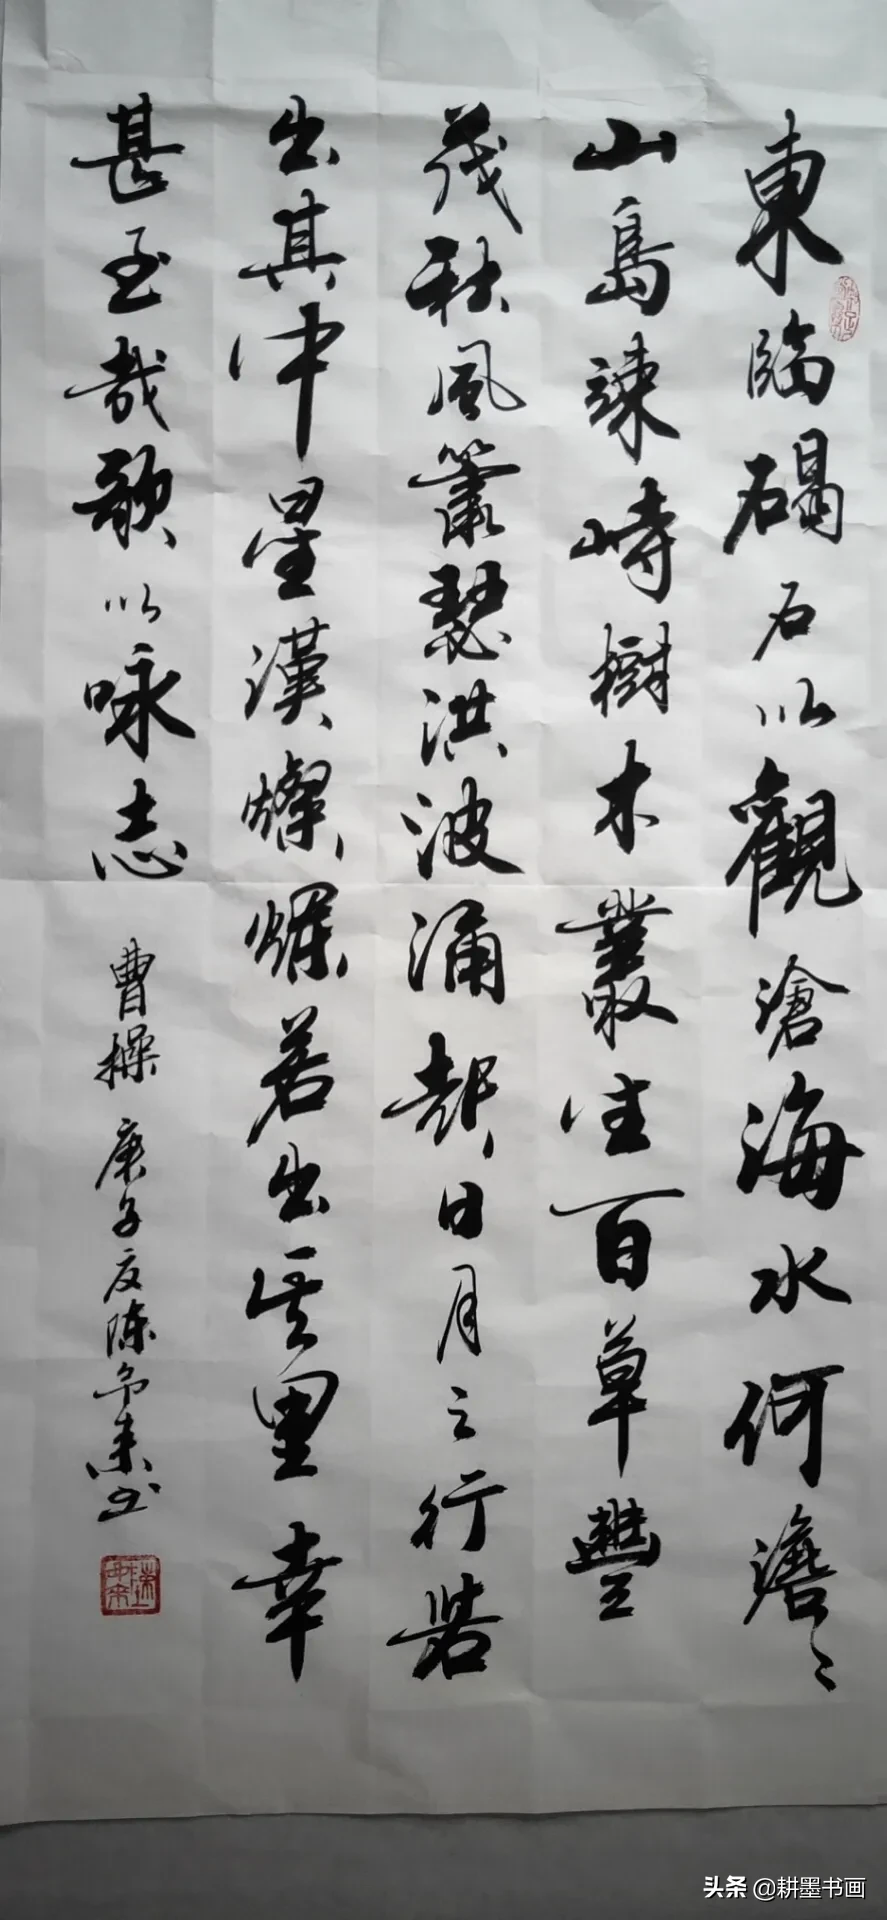 東臨碣石以觀滄海水何澹〻
山島竦峙樹木叢生百草豐
茂秋風蕭瑟洪波涌起日月之行若
出其中星漢燦爛若出其里幸
甚至哉歌以咏志 曹操 庚子夏陈来书
头条 @耕墨书画